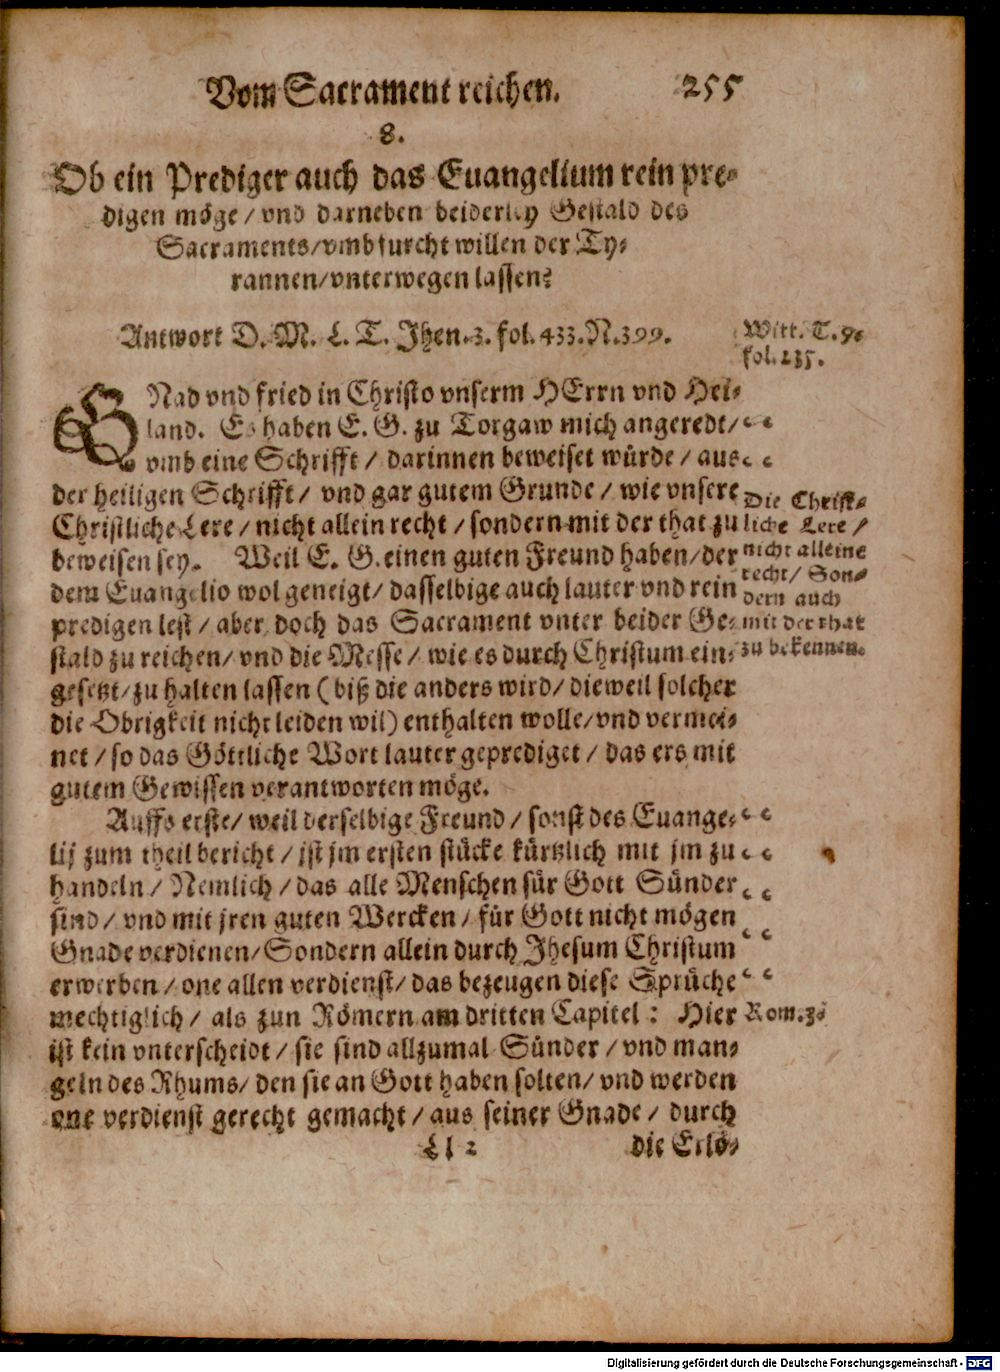 Vom Sacrament reichen. 255
8.
Ob ein Prediger auch das Euangelium rein pre-
digen möge / vnd darneben beiderley Gestald des
Sacraments / vmb furcht willen der Ty-
rannen / vnterwegen lassen?
Antwort D. M. L. T. Jhen. 3. fol. 433. N. 399.
Witt. T. 9.
fol. 235.
GNad vnd fried in Christo vnserm HErrn vnd Hei-
land. Es haben E. G. zu Torgaw mich angeredt /
vmb eine Schrifft / darinnen beweiset würde / aus
der heiligen Schrifft / vnd gar gutem Grunde / wie vnsere
Christliche Lere / nicht allein recht / sondern mit der that zu
beweisen sey. Weil E. G. einen guten Freund haben / der
dem Euangelio wol geneigt / dasselbige auch lauter vnd rein
predigen lest / aber doch das Sacrament vnter beider Ge-
stald zu reichen / vnd die Messe / wie es durch Christum ein-
gesetzt / zu halten lassen (biß die anders wird / dieweil solcher
die Obrigkeit nicht leiden wil) enthalten wolle / vnd vermei-
net / so das Göttliche Wort lauter geprediget / das ers mit
gutem Gewissen verantworten möge.
Die Christ-
liche Lere /
nicht alleine
recht / Son-
dern auch
mit der that
zu bekennen.
Auffs erste / weil derselbige Freund / sonst des Euange-
lij zum theil bericht / ist jm ersten stücke kürtzlich mit jm zu
handeln / Nemlich / das alle Menschen für Gott Sünder
sind / vnd mit jren guten Wercken / für Gott nicht mögen
Gnade verdienen / Sondern allein durch Jhesum Christum
erwerben / one allen verdienst / das bezeugen diese Sprüche
mechtiglich / als zun Römern am dritten Capitel : Hier
Rom. 3.
ist kein vnterscheidt / sie sind allzumal Sünder / vnd man-
geln des Rhums / den sie an Gott haben solten / vnd werden
one verdienst gerecht gemacht / aus seiner Gnade / durch
Ll 2 die Erlö-
Digitalisierung gefördert durch die Deutsche Forschungsgemeinschaft - DFG